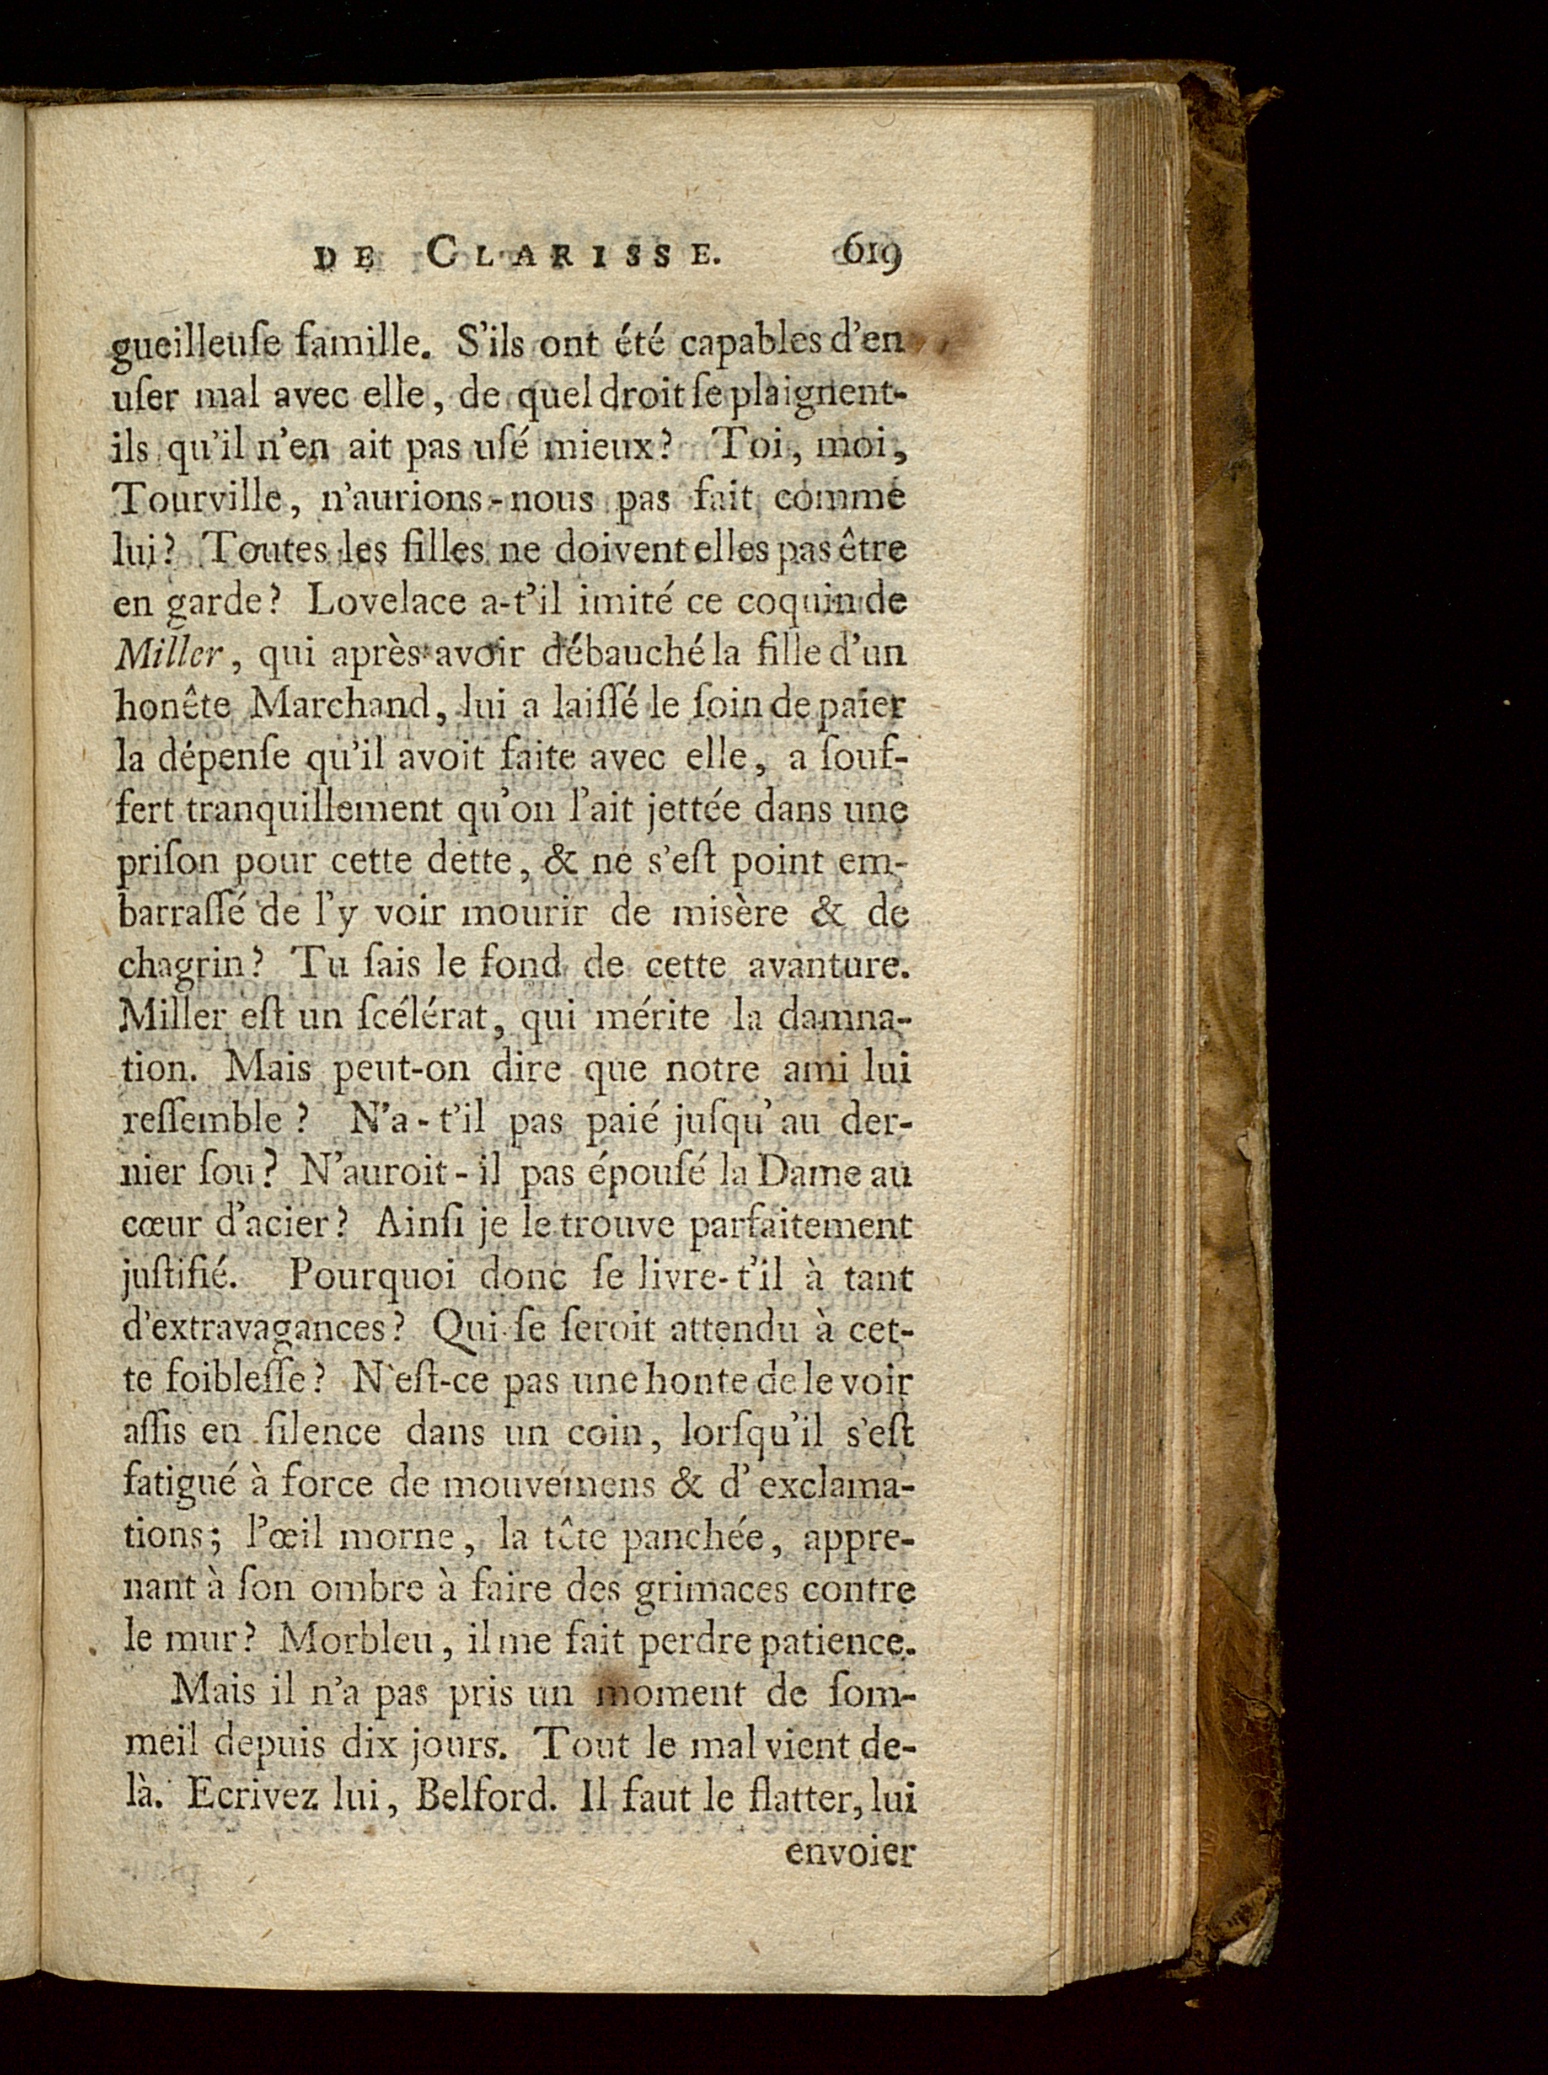 DE CLARISSE. 619
gueilleuſe famille. S'ils ont été capables d'en
uſer mal avec elle, de quel droit ſe plaignent-
ils qu'il n'en ait pas uſé mieux? Toi, moi,
Tourville, n'aurions-nous pas fait comme
lui? Toutes les filles ne doivent elles pas être
en garde? Lovelace a-t'il imité ce coquin de
Miller, qui après avoir débauché la fille d'un
honête Marchand, lui a laiſſé le ſoin de païer
la dépenſe qu'il avoit faite avec elle, a ſouf-
fert tranquillement qu'on l'ait jettée dans une
priſon pour cette dette, & ne s'eſt point em-
barraſſé de l'y voir mourir de misère & de
chagrin? Tu ſais le fond de cette avanture.
Miller eſt un ſcélérat, qui mérite la damna-
tion. Mais peut-on dire que notre ami lui
reſſemble? N'a-t'il pas paié juſqu'au der-
nier ſou? N'auroit-il pas épouſé la Dame au
cœur d'acier? Ainſi je le trouve parfaitement
juſtifié. Pourquoi donc ſe livre-t'il à tant
d'extravagances? Qui ſe ſeroit attendu à cet-
te foibleſſe? N'eſt-ce pas une honte de le voir
aſſis en ſilence dans un coin, lorſqu'il s'eſt
fatigué à force de mouvemens & d'exclama-
tions; l'œil morne, la tête panchée, appre-
nant à ſon ombre à faire des grimaces contre
le mur? Morbleu, il me fait perdre patience.
Mais il n'a pas pris un moment de ſom-
meil depuis dix jours. Tout le mal vient de-
là. Ecrivez lui, Belford. Il faut le flatter, lui
envoier